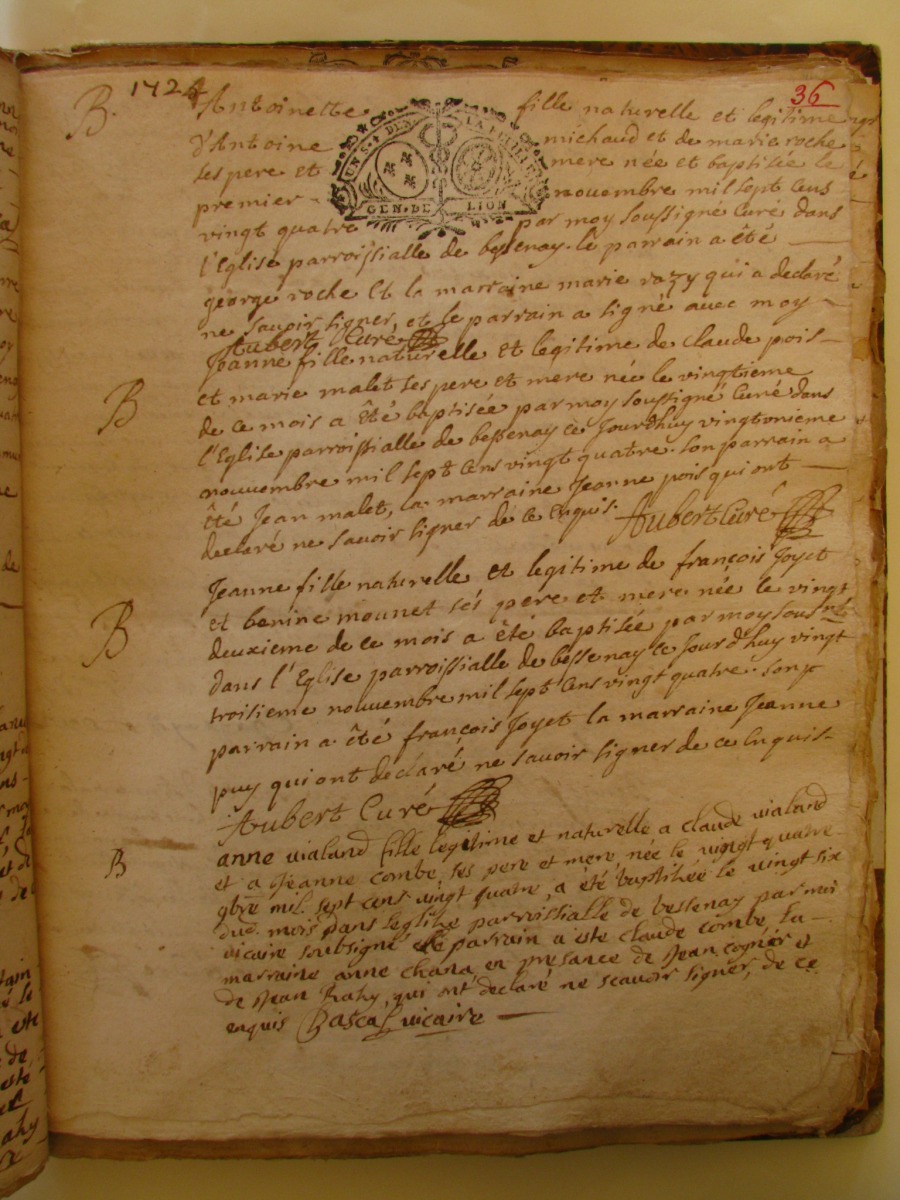 B. 1724 Antoinette fille naturelle et legitime 36
d'Antoine michaud et de marie roche
ses pere et mere née et baptisée le
premier nouembre mil sept cens
vingt quatre par moy soussigné Curé dans
l'Eglise parroissialle de bessenay. le parrain a été
UN S. 4 DEN.
GEN. DE LION
george roche Et la marraine marie razy qui a declaré
ne savoir signer, et le parrain a signé avec moy
Aubert Curé
B Jeanne fille naturelle et legitime de claude pois
et marie malet ses pere et mere née le vingtieme
de ce mois a été baptisée par moy soussigné Curé dans
l'Eglise parroissialle de bessenay ce Jourdhuy vingtonieme
nouuembre mil sept Cens vingt quatre. son parrain a
été Jean malet, la marraine Jeanne pois qui ont
declaré ne savoir signer de ce Enquis. Aubert Curé
B Jeanne fille naturelle et legitime de françois Joyet
et benine mounet ses pere et mere née le vingt
deuxieme de ce mois a été baptisée par moy sous
dans l'Eglise parroissialle de bessenay ce Jourdhuy vingt
troisieme nouuembre mil sept Cens vingt quatre. son
parrain a été françois Joyet la marraine Jeanne
puy qui ont declaré ne savoir signer de ce Enquis.
Aubert Curé
B anne vialand fille legitime et naturelle a claude vialand
et a Jeanne combe, ses pere et mere, née le vingt quatre
9bre mil sept cens vingt quatre, a été baptisée le vingt six
dud. mois dans leglise parroissialle de bessenay par moi
vicaire soubsigné le parrain a este claude combe la
marraine anne chana en presance de Jean cognér et
de Jean Rahy, qui ont declaré ne scavoir signer, de ce
enquis Pascal vicaire